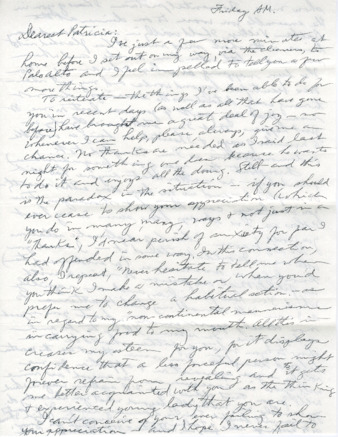 Friday AM.
Dearest Patricia:
I've just a few more minutes at
home before I set out on my way via the cleaners, to
Palo Alto and I feel impelled to tell you a few
more things.
To reiterate — the things I've been able to do for
you in recent days (as well as all that have gone
before) have brought me a great deal of joy — so
whenever I can help, please always, give me the
chance. No thanks are needed as I said last
night for something one does because he wants
to do it and enjoys all the doing. Still — and this
is the paradox in the situation — if you should
ever cease to show your appreciation (which
you do in many, many, ways & not just in
"thanks",) I'd near perish of anxiety for fear I
had offended in some way. In this connection,
also, I request, "Never hesitate to tell me when
you think I make a mistake or when you'd
prefer me to change a habitual action — as
in regard to my non-continental mannerisms
in carrying food to my mouth. All this in
creases my esteem for you, for it displays
confidence that a less forceful person might
forever refrain from revealing and it gets
me better acquainted with you as the thinking
& experienced young lady that you are.
I can't conceive of you ever failing to show
your appreciation & and I hope I never fail to